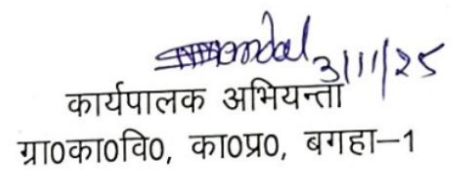 3/11/25
कार्यपालक अभियन्ता
ग्रा०का०वि०, का०प्र०, बगहा–1